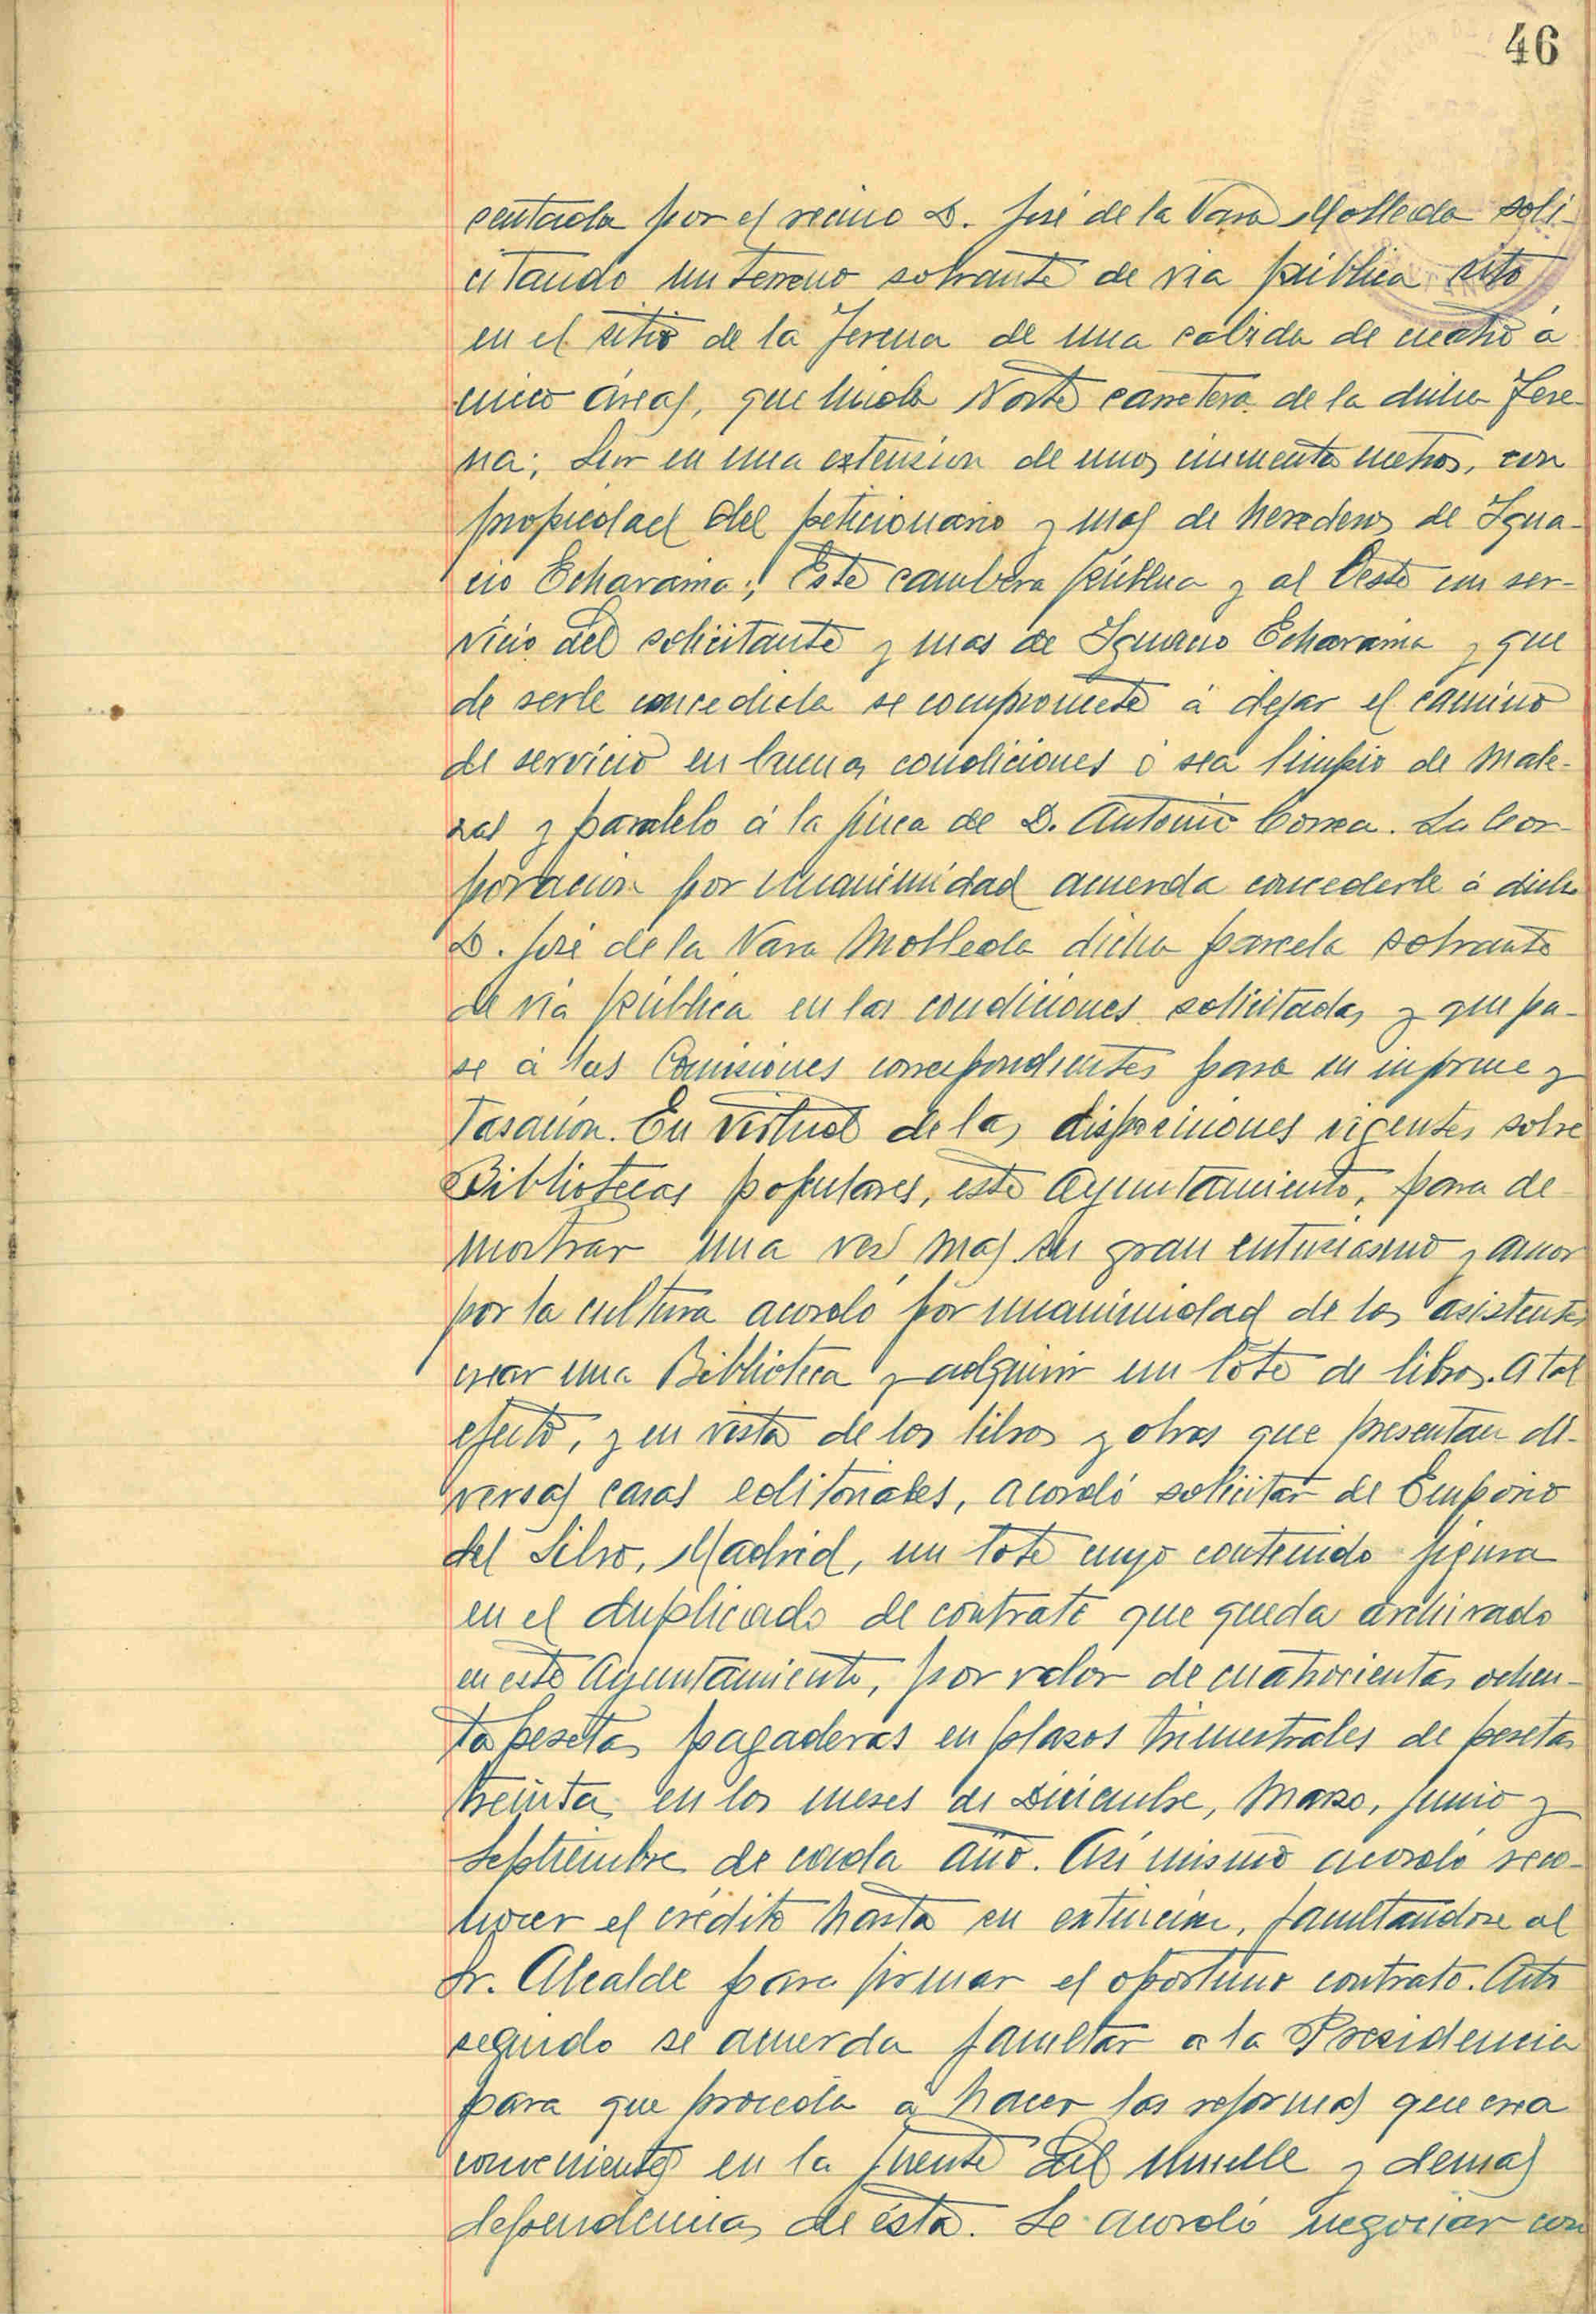 46
sentada por el vecino D. José de la Vara Molleda soli-
citando un terreno sobrante de via pública sito
en el sitio de la Jerena de una cabida de cuatro á
cinco áreas, que linda Norte carretera de la dicha Jere-
na; Sur en una extension de unos cincuenta metros, con
propiedad del peticionario y mas de herederos de Igna-
cio Echavarria; Este cambera pública y al Oeste con ser-
vicio del solicitante y mas de Ignacio Echavarria y que
de serle concedida se compromete á dejar el camino
de servicio en buenas condiciones ó sea limpio de male-
zas y paralelo á la finca de D. Antonio Correa. La Cor-
poracion por unanimidad acuerda concederle á dicho
D. José de la Vara Molleda dicha parcela sobrante
de via pública en las condiciones solicitadas y que pa-
se á las Comisiones correspondientes para su informe y
Tasación. En virtud de las disposiciones vigentes sobre
Bibliotecas populares, este Ayuntamiento, para de-
mostrar una vez mas su gran entusiasmo y amor
por la cultura acordó por unanimidad de los asistentes
crear una Biblioteca y adquirir un lote de libros. A tal
efecto, y en vista de los libros y obras que presentan di-
versas casas editoriales, acordó solicitar de Emporio
del Libro, Madrid, un lote cuyo contenido figura
en el duplicado de contrato que queda archivado
en este Ayuntamiento, por valor de cuatrocientas ochen-
ta pesetas pagaderas en plazos trimestrales de pesetas
treinta en los meses de Diciembre, Marzo, Junio y
Septiembre de cada año. Asi mismo acordó reco-
nocer el crédito hasta su extinción, facultandose al
Sr. Alcalde para firmar el oportuno contrato. Acto
seguido se acuerda facultar a la Presidencia
para que proceda á hacer las reformas que crea
convenientes en la fuente del Muelle y demas
dependencias de ésta. Se acordó negociar con